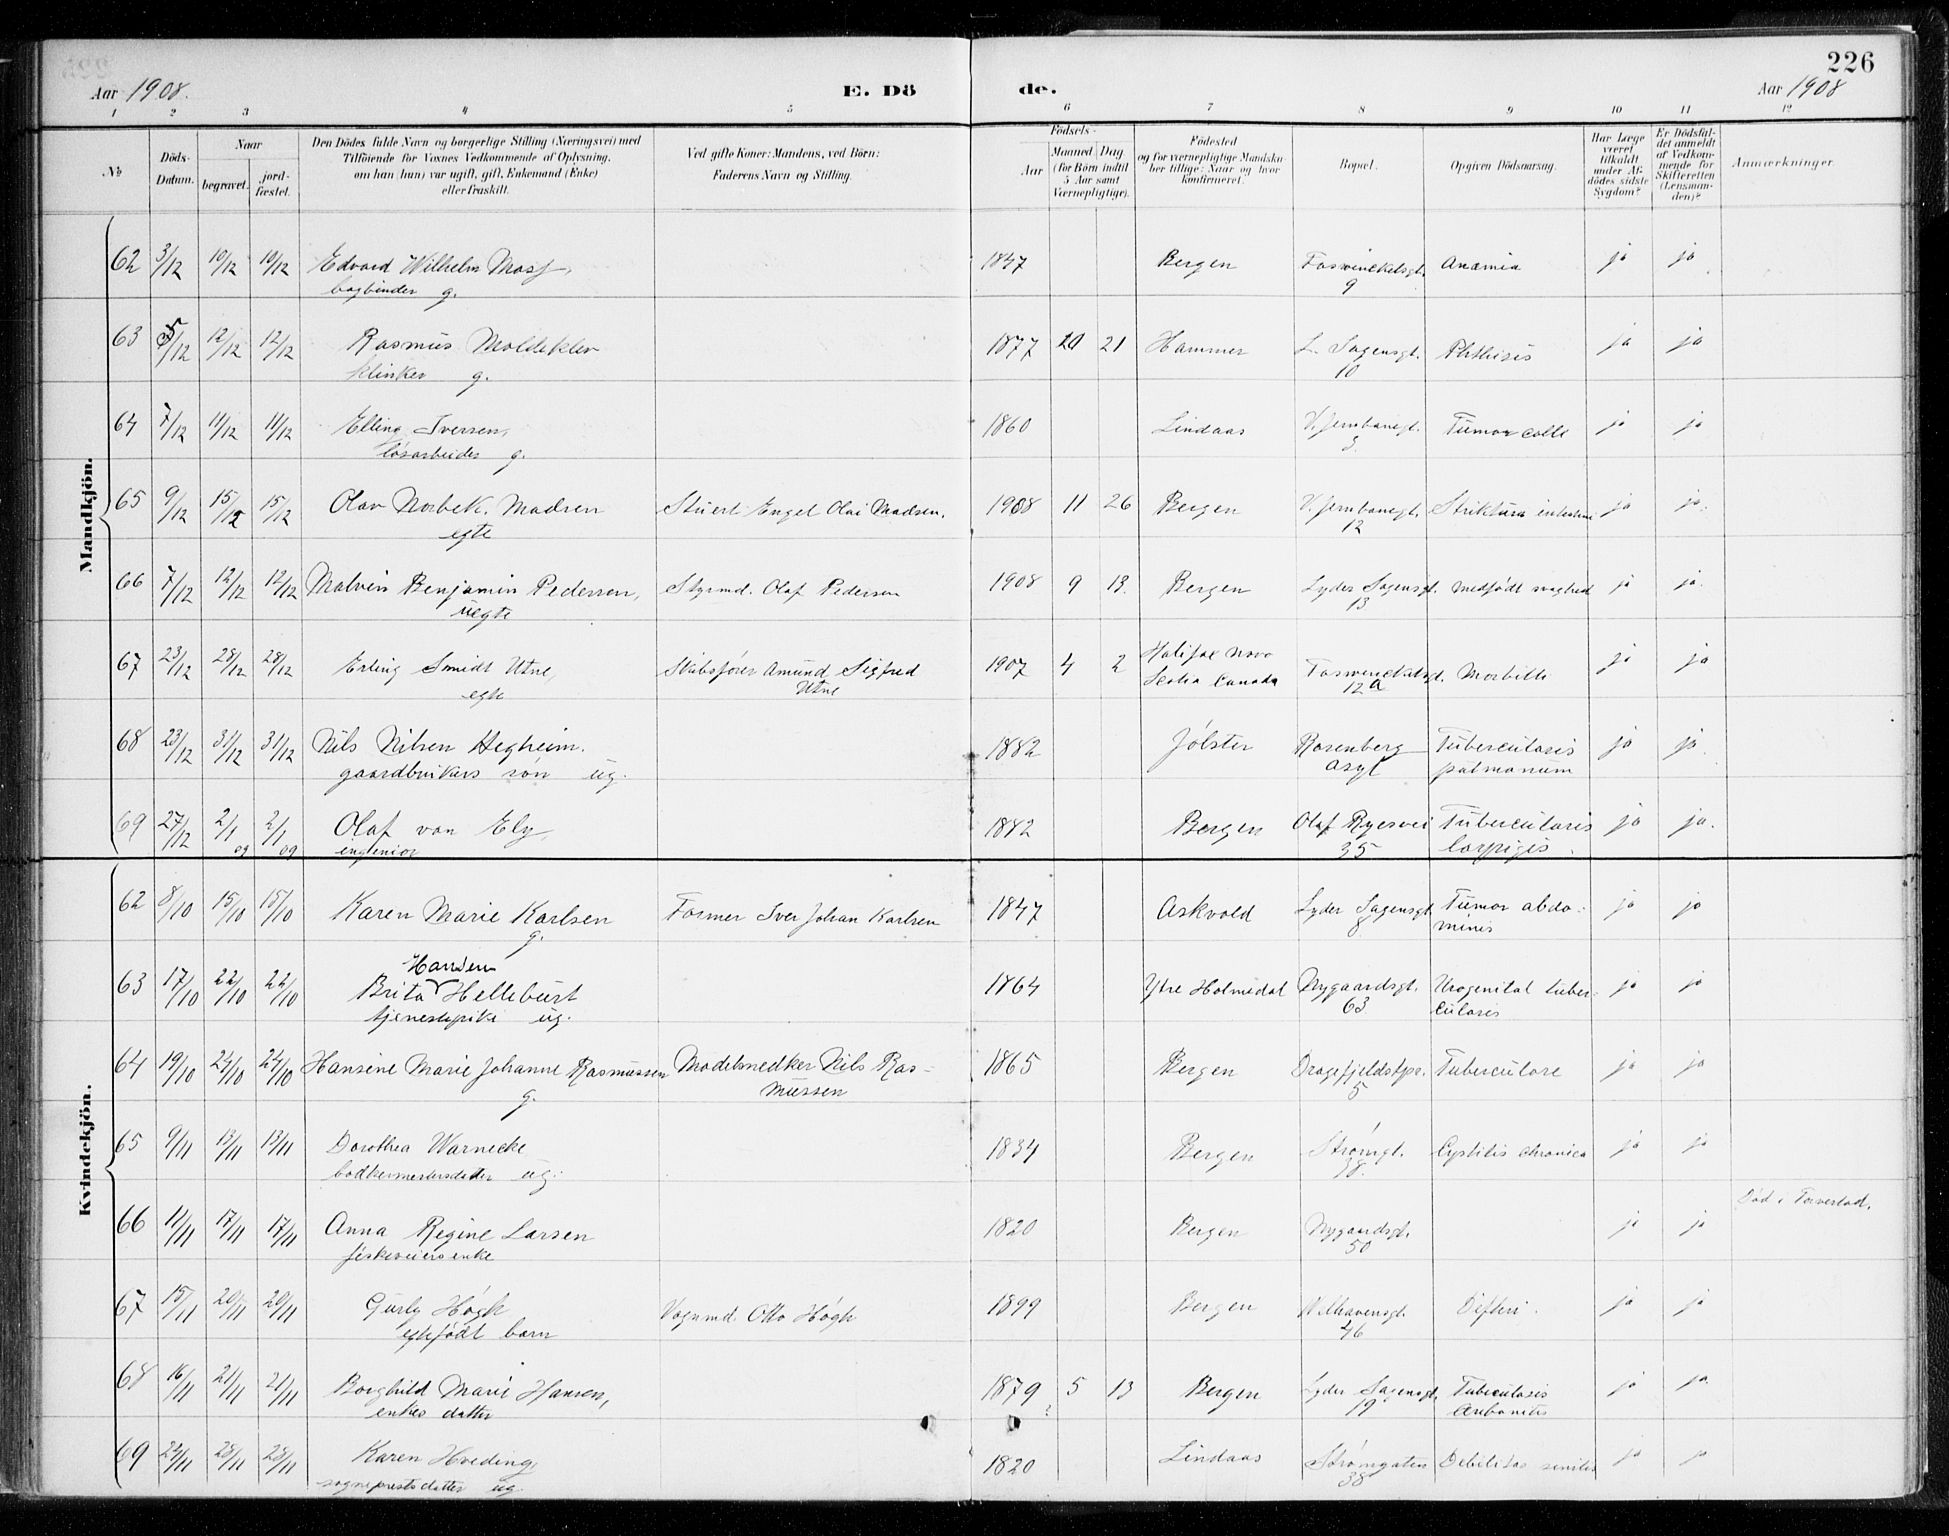 226
Aar 1908. E. Dö de. Aar 1908
1 2 3 4 5 6 7 8 9 10 11 12
No
Döds-Datum.
Naar
begravet.
jord-fæstet.
Den Dödes fulde Navn og borgerlige Stilling (Næringsvei) med
Tilföiende for Voxnes Vedkommende af Oplysning,
om han (hun) var ugift, gift, Enkemand (Enke)
eller fraskilt.
Ved gifte Koner: Mandens, ved Börn:
Faderens Navn og Stilling.
Födsels-
Aar
Maaned Dag
(for Börn indtil
5 Aar samt
Værnepligtige).
Födested
og for værnepligtige Mandska-
ber tillige: Naar og hvor
konfirmeret.
Bopæl.
Opgiven Dödsaarsag.
Har Læge
været
tilkaldt
under Af-
dödes sidste
Sygdom?
Er Dödsfal-
det anmeldt
af Vedkom-
mende for
Skifteretten
(Lensman-
den)?
Anmærkninger.
Mandkjön.
62 3/12 10/12 10/12 Edvard Wilhelm 1847 Bergen Anæmia ja ja
bogbinder g. 9
63 5/12 12/12 12/12 Rasmus Moldeklev 1877 20 21 Hammer L. Sagensgt. Phthisis ja ja
klinker g. 10
64 7/12 11/12 11/12 Elling Iversen, 1860 Lindaas V. Jernbanegt. Tumor colli ja ja
løsarbeider g. 3
65 9/12 15/12 15/12 Olav Norbek Madsen Stuert Engel Olai Madsen. 1908 11 26 Bergen V. Jernbanegt. Striktura intestini ja ja
egte 12
66 7/12 12/12 12/12 Malvin Benjamin Pedersen, Styrmd. Olaf Pedersen 1908 9 13. Bergen Lyder Sagensgt. medfødt svaghed ja ja
uegte 13
67 23/12 28/12 28/12 Erling Smidt Utne, Skibsfører Amund Sigfred 1907 4 2 Halifax nova Morbilli ja ja
egte Utne Scotia Canada 12a
68 23/12 31/12 31/12 Nils Nilsen Hegheim. 1882 Jølster Rosenberg Tuberculosis ja ja
gaardbrukers søn ug. asyl pulmonum
69 27/12 2/1 2/1 Olaf von Ely, 1842 Bergen Olaf Ryesvei Tuberculosis ja ja.
ingeniør 09 09 35 laryngis
Kvindekjön.
62 8/10 15/10 15/10 Karen Marie Karlsen Former Iver Johan Karlsen 1847 Askvold Lyder Sagensgt. Tumor abdo- ja ja
g. 8 minis
Hansen
63 17/10 22/10 22/10 Brita Helleburt 1864 Ytre Holmedal Nygaardsgt. Urogenital tuber- ja ja
tjenestepike ug. 63 culosis
64 19/10 24/10 24/10 Hansine Marie Johanne Rasmussen Modelsnedker Nils Ras- 1865 Bergen Dragefjeldstpr. Tuberculose ja ja
g. mussen 5
65 9/11 13/11 13/11 Dorothea Warnecke 1834 Bergen Strømgt. Cystitis chronica ja ja
bødkermestersdatter ug. 38.
66 11/11 17/11 17/11 Anna Regine Larsen 1820 Bergen Nygaardsgt. ja ja Död i Torvestad.
enke 50
67 15/11 20/11 20/11 Gurly Høgh Vognmd. Otto Høgh 1899 Bergen Welhavensgt. Difteri. ja ja
egtefødt barn 46
68 16/11 21/11 21/11 Borghild Marie Hansen, 1879 5 13 Bergen Lyder Sagensgt. Tuberculosis ja ja
enkes datter ? 19
69 24/11 28/11 28/11 Karen Hveding, 1820 Lindaas Strømgaten Debilitas senilis ja ja
sogneprestsdatter ug. 38